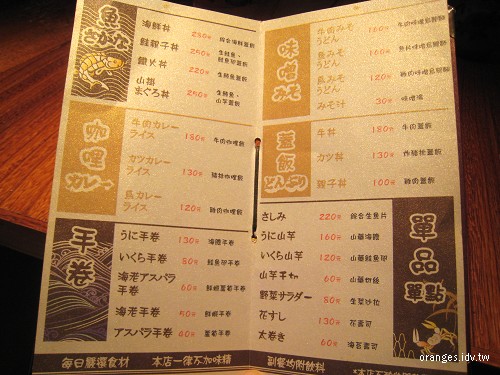 魚
さかな
海鮮丼 250元 綜合海鮮蓋飯
鮭親子丼 250元 生鮭魚、鮭魚卵蓋飯
鐵火丼 220元 生鮪魚蓋飯
山掛
まぐろ丼 250元 生鮪魚、山芋蓋飯
咖哩
カレー
牛肉カレー
ライス 180元 牛肉咖哩飯
カツカレー
ライス 130元 豬排咖哩飯
鳥カレー
ライス 120元 雞肉咖哩飯
手卷
うに手卷 130元 海膽手卷
いくら手卷 80元 鮭魚卵手卷
海老アスパラ
手卷 60元 鮮蝦蘆筍手卷
海老手卷 50元 鮮蝦手卷
アスパラ手卷 60元 蘆筍手卷
每日嚴選食材 本店一律不加味精
味噌
みそ
牛肉みそ
うどん 160元 牛肉味噌烏龍麵
魚みそ
うどん 160元 魚片味噌烏龍麵
鳥みそ
うどん 120元 雞肉味噌烏龍麵
みそ汁 30元 味噌湯
蓋飯
どんぶり
牛丼 180元 牛肉蓋飯
カツ丼 130元 炸豬排蓋飯
親子丼 100元 雞肉蓋飯
單品
單點
さしみ 220元 綜合生魚片
うに山芋 160元 山藥海膽
いくら山芋 120元 山藥鮭魚卵
山芋千切 60元 山藥切絲
野菜サラダー 80元 生菜沙拉
花すし 130元 花壽司
太巻き 60元
副餐均附飲料
oranges.idv.tw